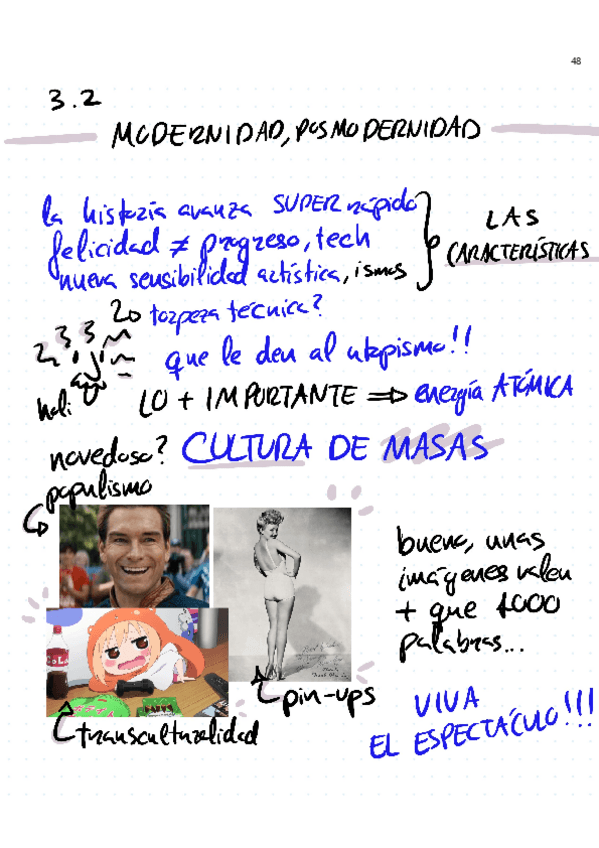 48
3.2
MODERNIDAD, POSMODERNIDAD
la historia avanza SUPER rápido
felicidad ≠ progreso, tech
nueva sensibilidad artística, ismos
LAS
CARACTERÍSTICAS
torpeza técnica?
que le den al utopismo!!
holi
LO + IMPORTANTE ⇒ energía ATÓMICA
novedoso? CULTURA DE MASAS
populismo
bueno, unas
imágenes valen
+ que 1000
palabras...
COLA
pin-ups
transculturalidad
VIVA
EL ESPECTÁCULO!!!